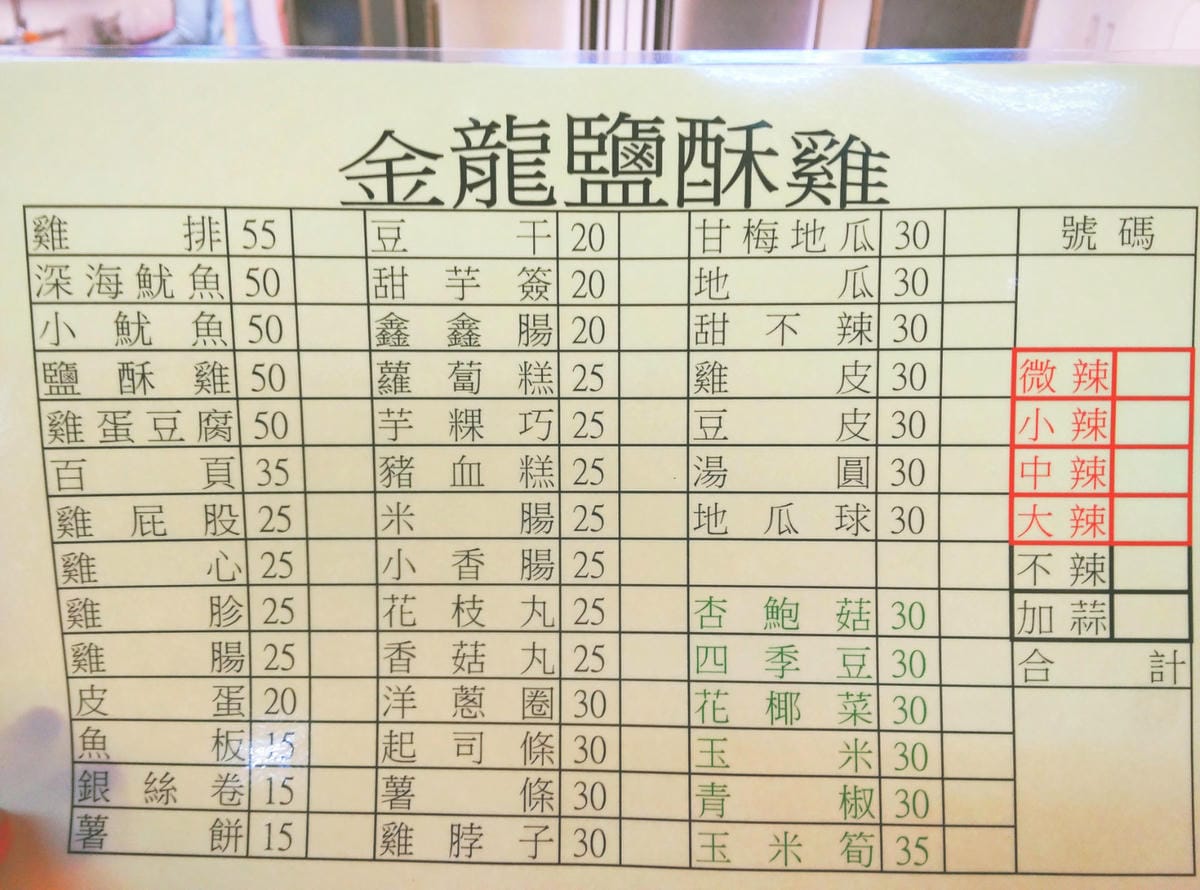 金龍鹽酥雞
雞排 55 豆干 20 甘梅地瓜 30 號碼
深海魷魚 50 甜芋簽 20 地瓜 30
小魷魚 50 鑫鑫腸 20 甜不辣 30
鹽酥雞 50 蘿蔔糕 25 雞皮 30 微辣
雞蛋豆腐 50 芋粿巧 25 豆皮 30 小辣
百頁 35 豬血糕 25 湯圓 30 中辣
雞屁股 25 米腸 25 地瓜球 30 大辣
雞心 25 小香腸 25 不辣
雞胗 25 花枝丸 25 杏鮑菇 30 加蒜
雞腸 25 香菇丸 25 四季豆 30 合計
皮蛋 20 洋蔥圈 30 花椰菜 30
魚板 15 起司條 30 玉米 30
銀絲卷 15 薯條 30 青椒 30
薯餅 15 雞脖子 30 玉米筍 35